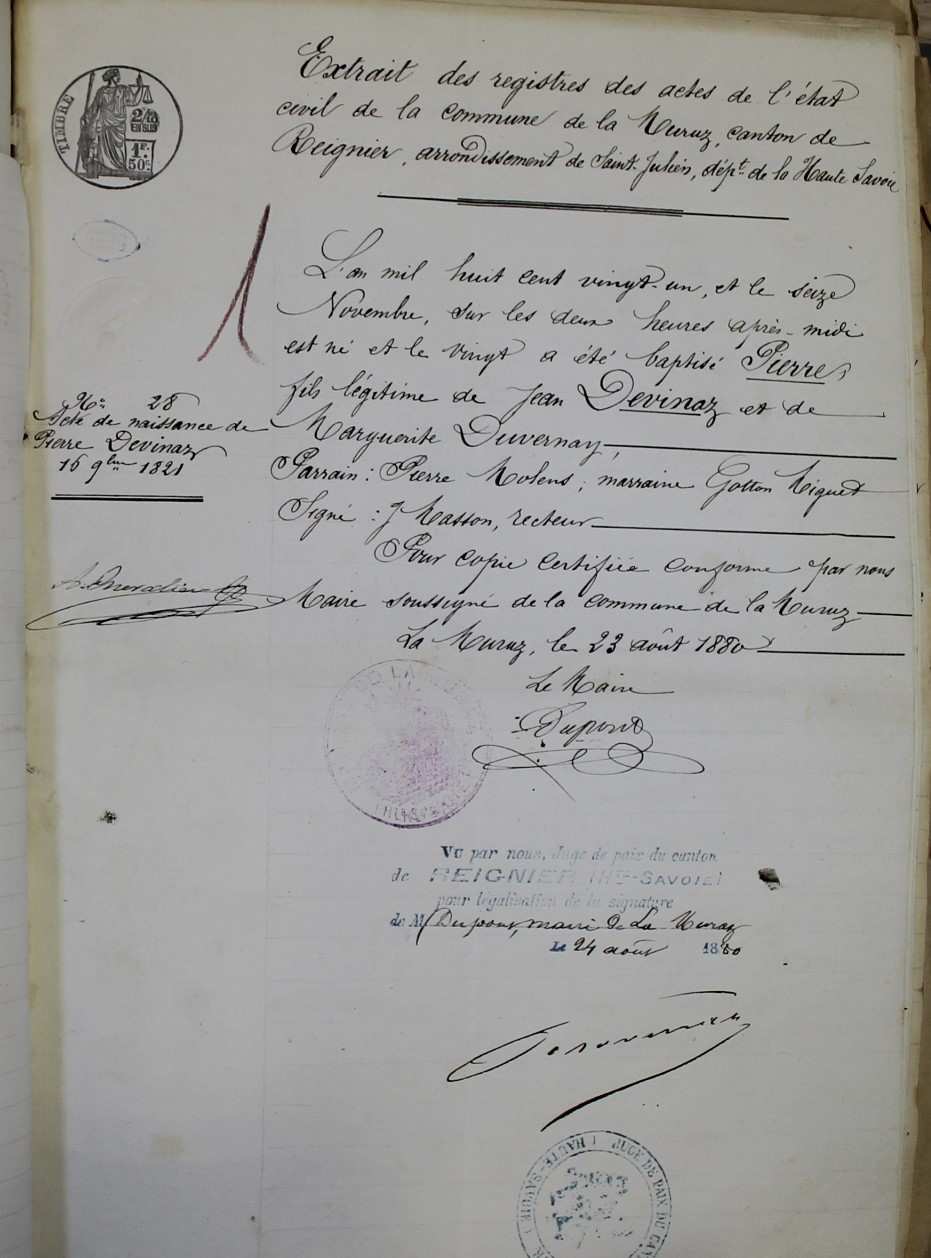 TIMBRE
2/10
EN SUS
1F.
50c.
Extrait des registres des actes de l'état
civil de la commune de la Muraz, canton de
Reignier, arrondissement de Saint-Julien, dépt. de la Haute Savoie
1
L'an mil huit cent vingt-un, et le seize
Novembre, sur les deux heures après-midi
est né et le vingt a été baptisé Pierre,
fils légitime de Jean Devinaz et de
Marguerite Duvernay,
Parrain: Pierre Molens; marraine Gotton Miguet
Signé: J Masson, recteur
Pour copie certifiée conforme par nous
Maire soussigné de la commune de la Muraz
La Muraz, le 23 août 1880
Le Maire
Dupont
No. 28
Acte de naissance de
Pierre Devinaz
16 9bre 1821
Vu par nous, Juge de paix du canton
de REIGNIER (Hte-SAVOIE)
pour légalisation de la signature
de M Dupont, maire de La Muraz
Le 24 août 1880
JUGE DE PAIX DU HAUTE-SAVOIE